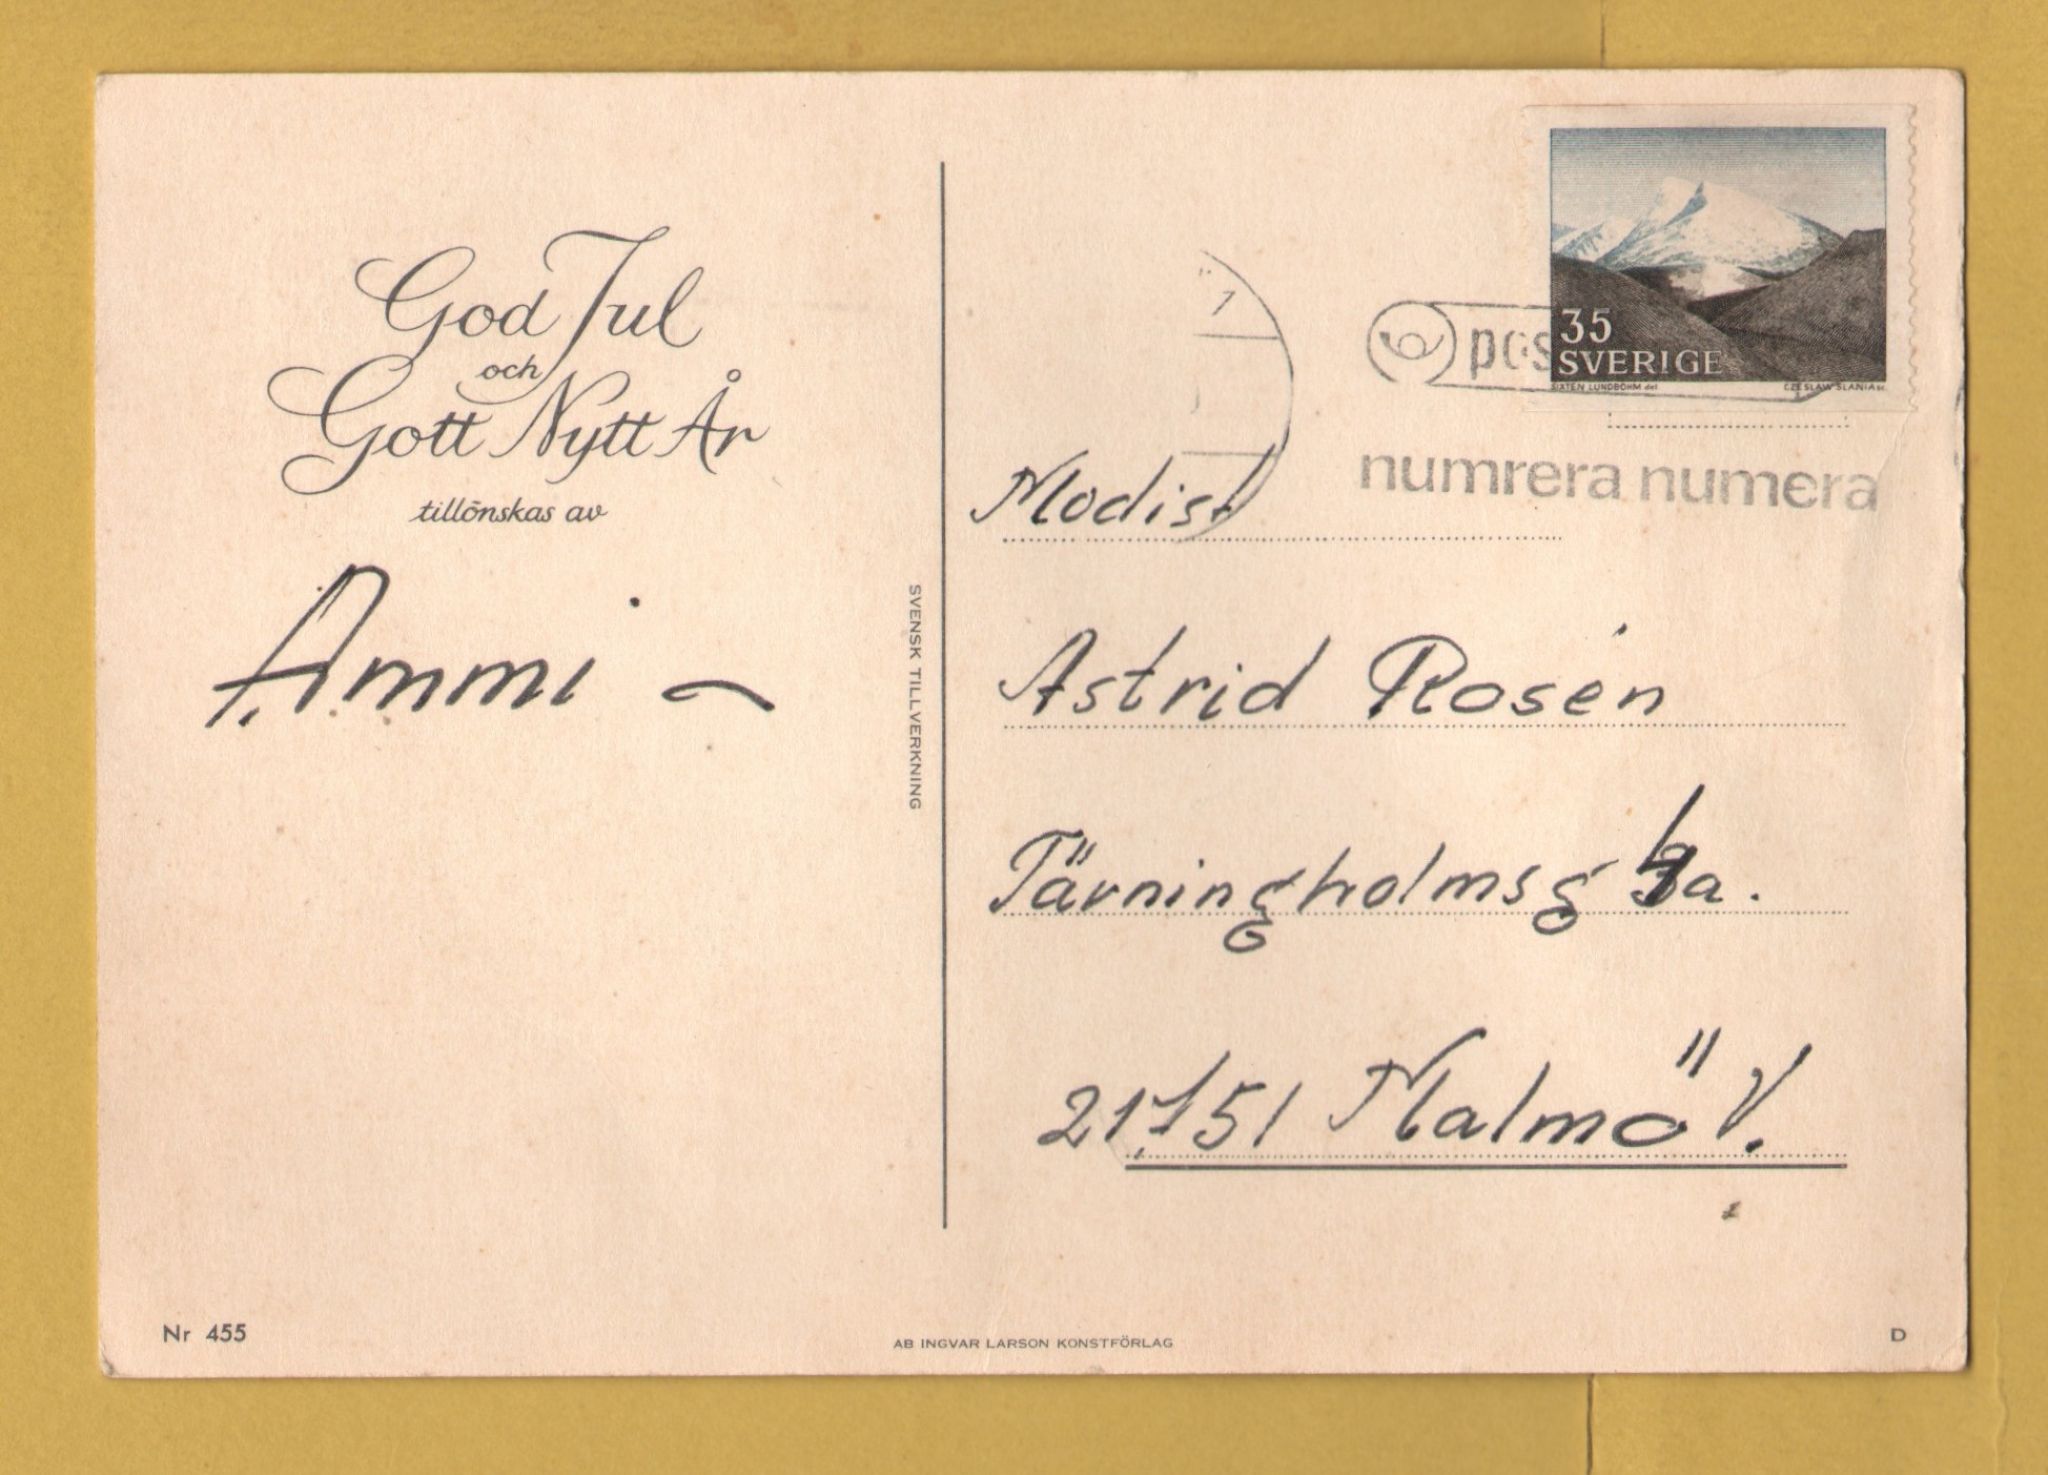 God Jul
och
Gott Nytt År
tillönskas av
Ammi
SVENSK TILLVERKNING
Nr 455
AB INGVAR LARSON KONSTFÖRLAG
D
35
SVERIGE
SIXTEN LUNDBOHM del
CZESLAW SLANIA sc.
pos
numrera numera
Modist
Astrid Rosén
Tärningholmsg a.
21751 Malmö V.